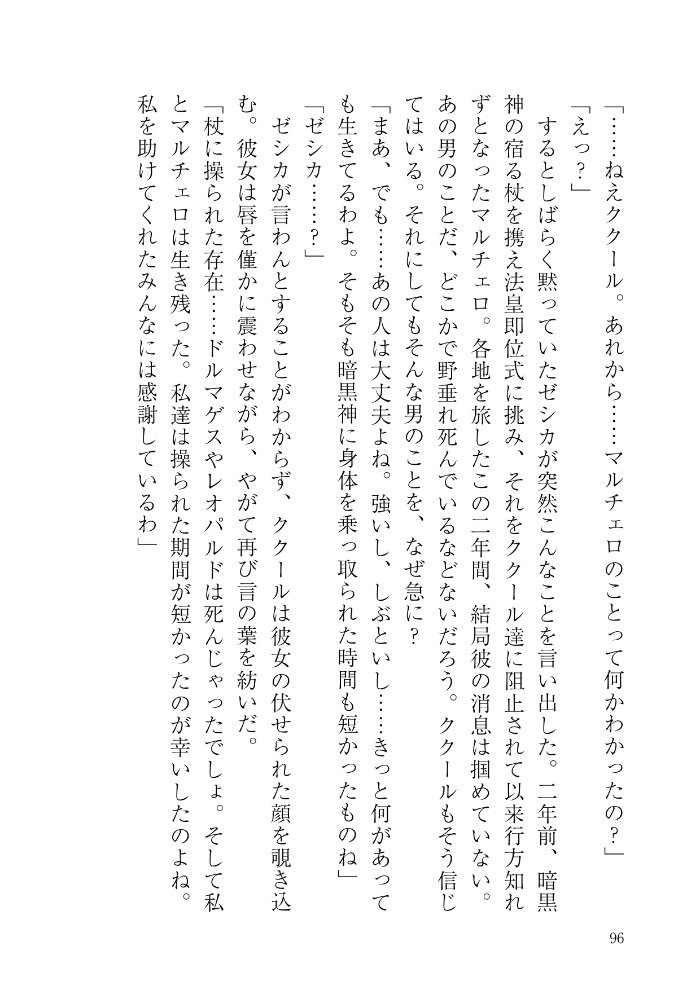 「……ねえククール。あれから……マルチェロのことって何かわかったの？」
「えっ？」
　するとしばらく黙っていたゼシカが突然こんなことを言い出した。二年前、暗黒
神の宿る杖を携え法皇即位式に挑み、それをククール達に阻止されて以来行方知れ
ずとなったマルチェロ。各地を旅したこの二年間、結局彼の消息は掴めていない。
あの男のことだ、どこかで野垂れ死んでいるなどないだろう。ククールもそう信じ
てはいる。それにしてもそんな男のことを、なぜ急に？
「まあ、でも……あの人は大丈夫よね。強いし、しぶといし……きっと何があって
も生きてるわよ。そもそも暗黒神に身体を乗っ取られた時間も短かったものね」
「ゼシカ……？」
　ゼシカが言わんとすることがわからず、ククールは彼女の伏せられた顔を覗き込
む。彼女は唇を僅かに震わせながら、やがて再び言の葉を紡いだ。
「杖に操られた存在……ドルマゲスやレオパルドは死んじゃったでしょ。そして私
とマルチェロは生き残った。私達は操られた期間が短かったのが幸いしたのよね。
私を助けてくれたみんなには感謝しているわ」
96